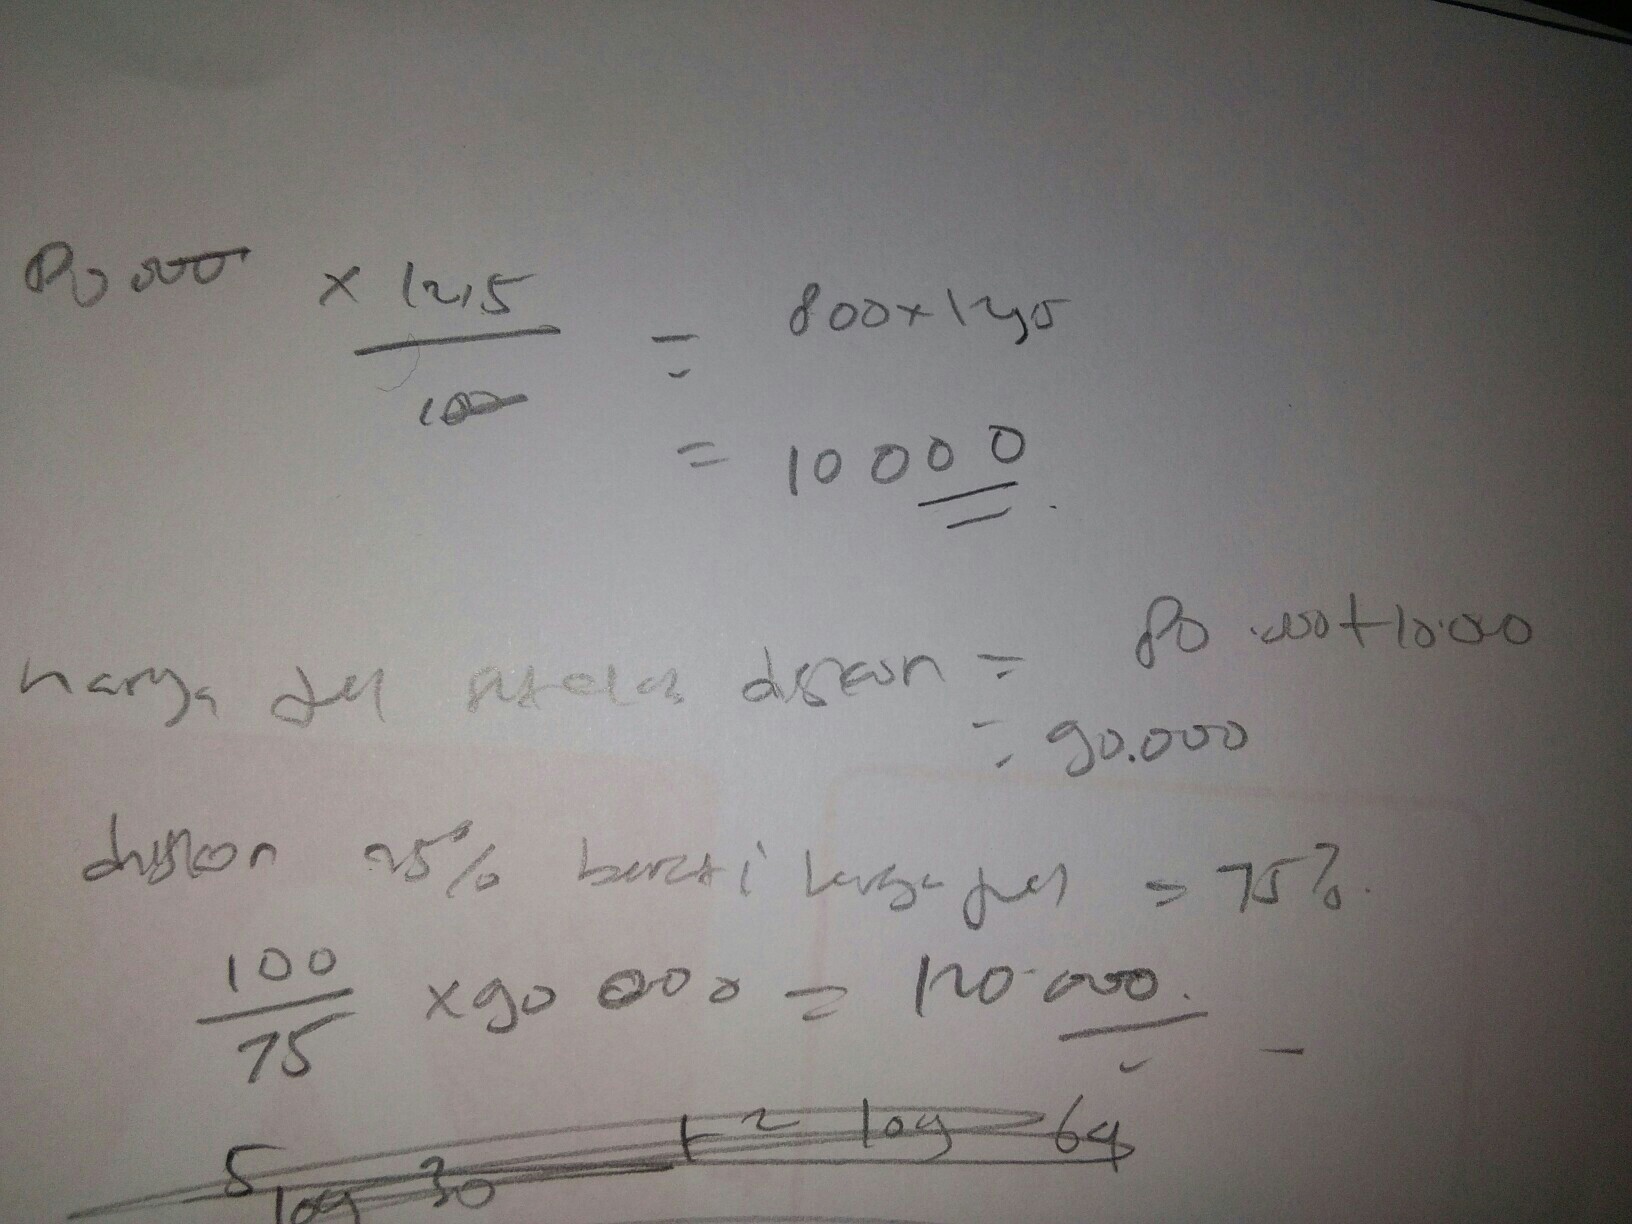 80.000 × 12,5 / 100 = 800 × 12,5
= 10000
harga jual setelah diskon = 80.000 + 10.000
= 90.000
diskon 25% berarti harga jual = 75%.
100 / 75 × 90 000 = 120.000.
5 log 30 + 2 log 64